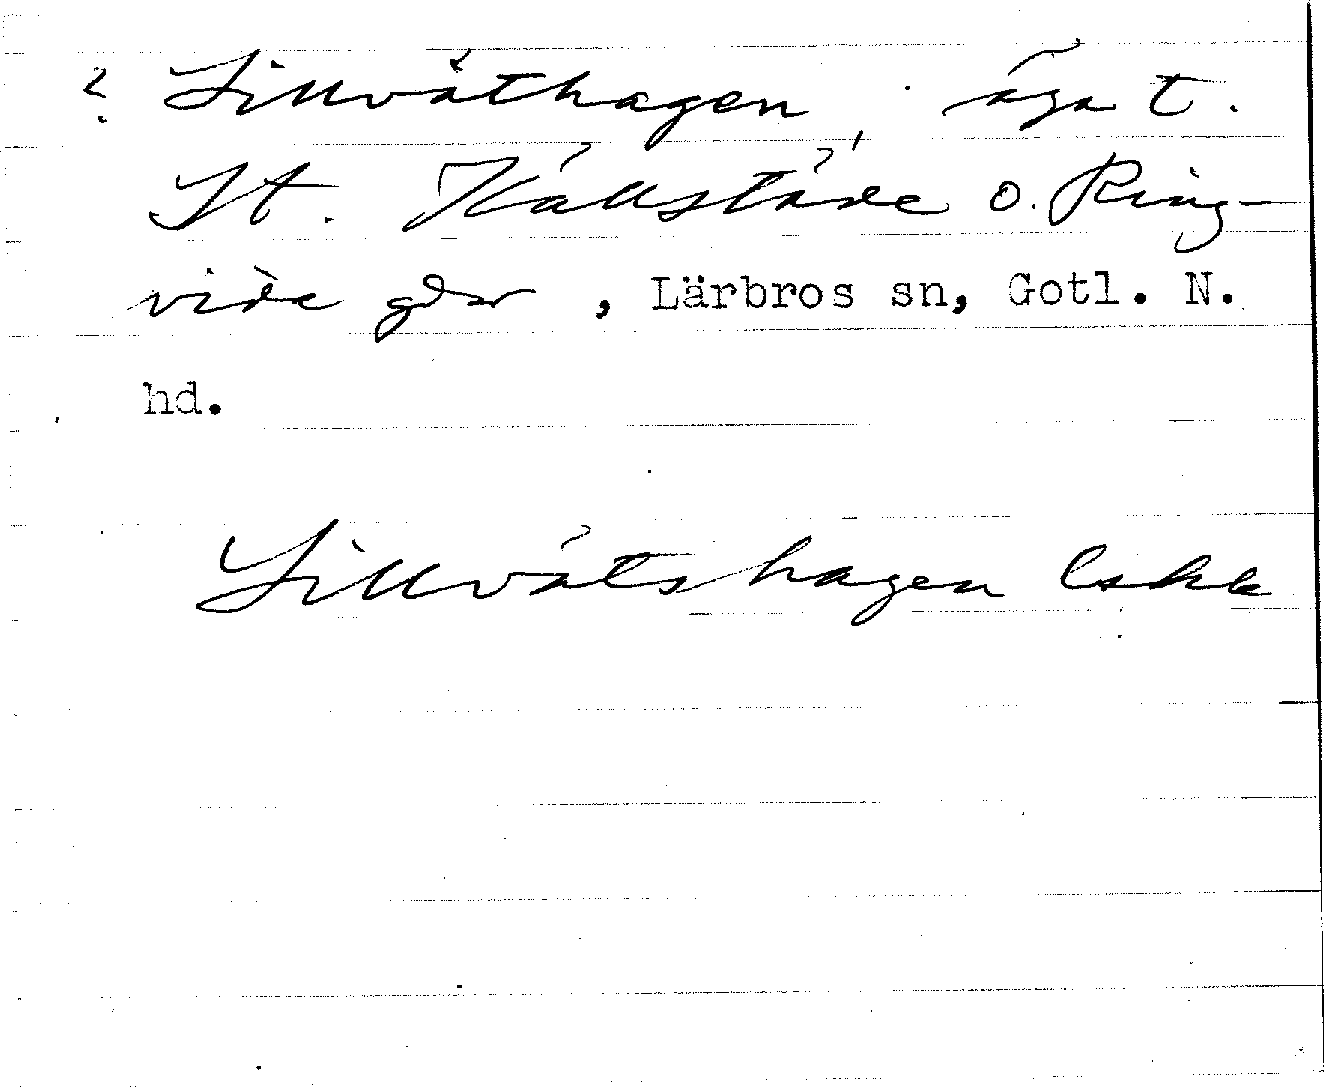 ? Lillvåthagen, äga t.
St. Hallstäde o. Ring-
vide gdr, Lärbros sn, Gotl. N.
hd.
Lillvåtshagen Lskk